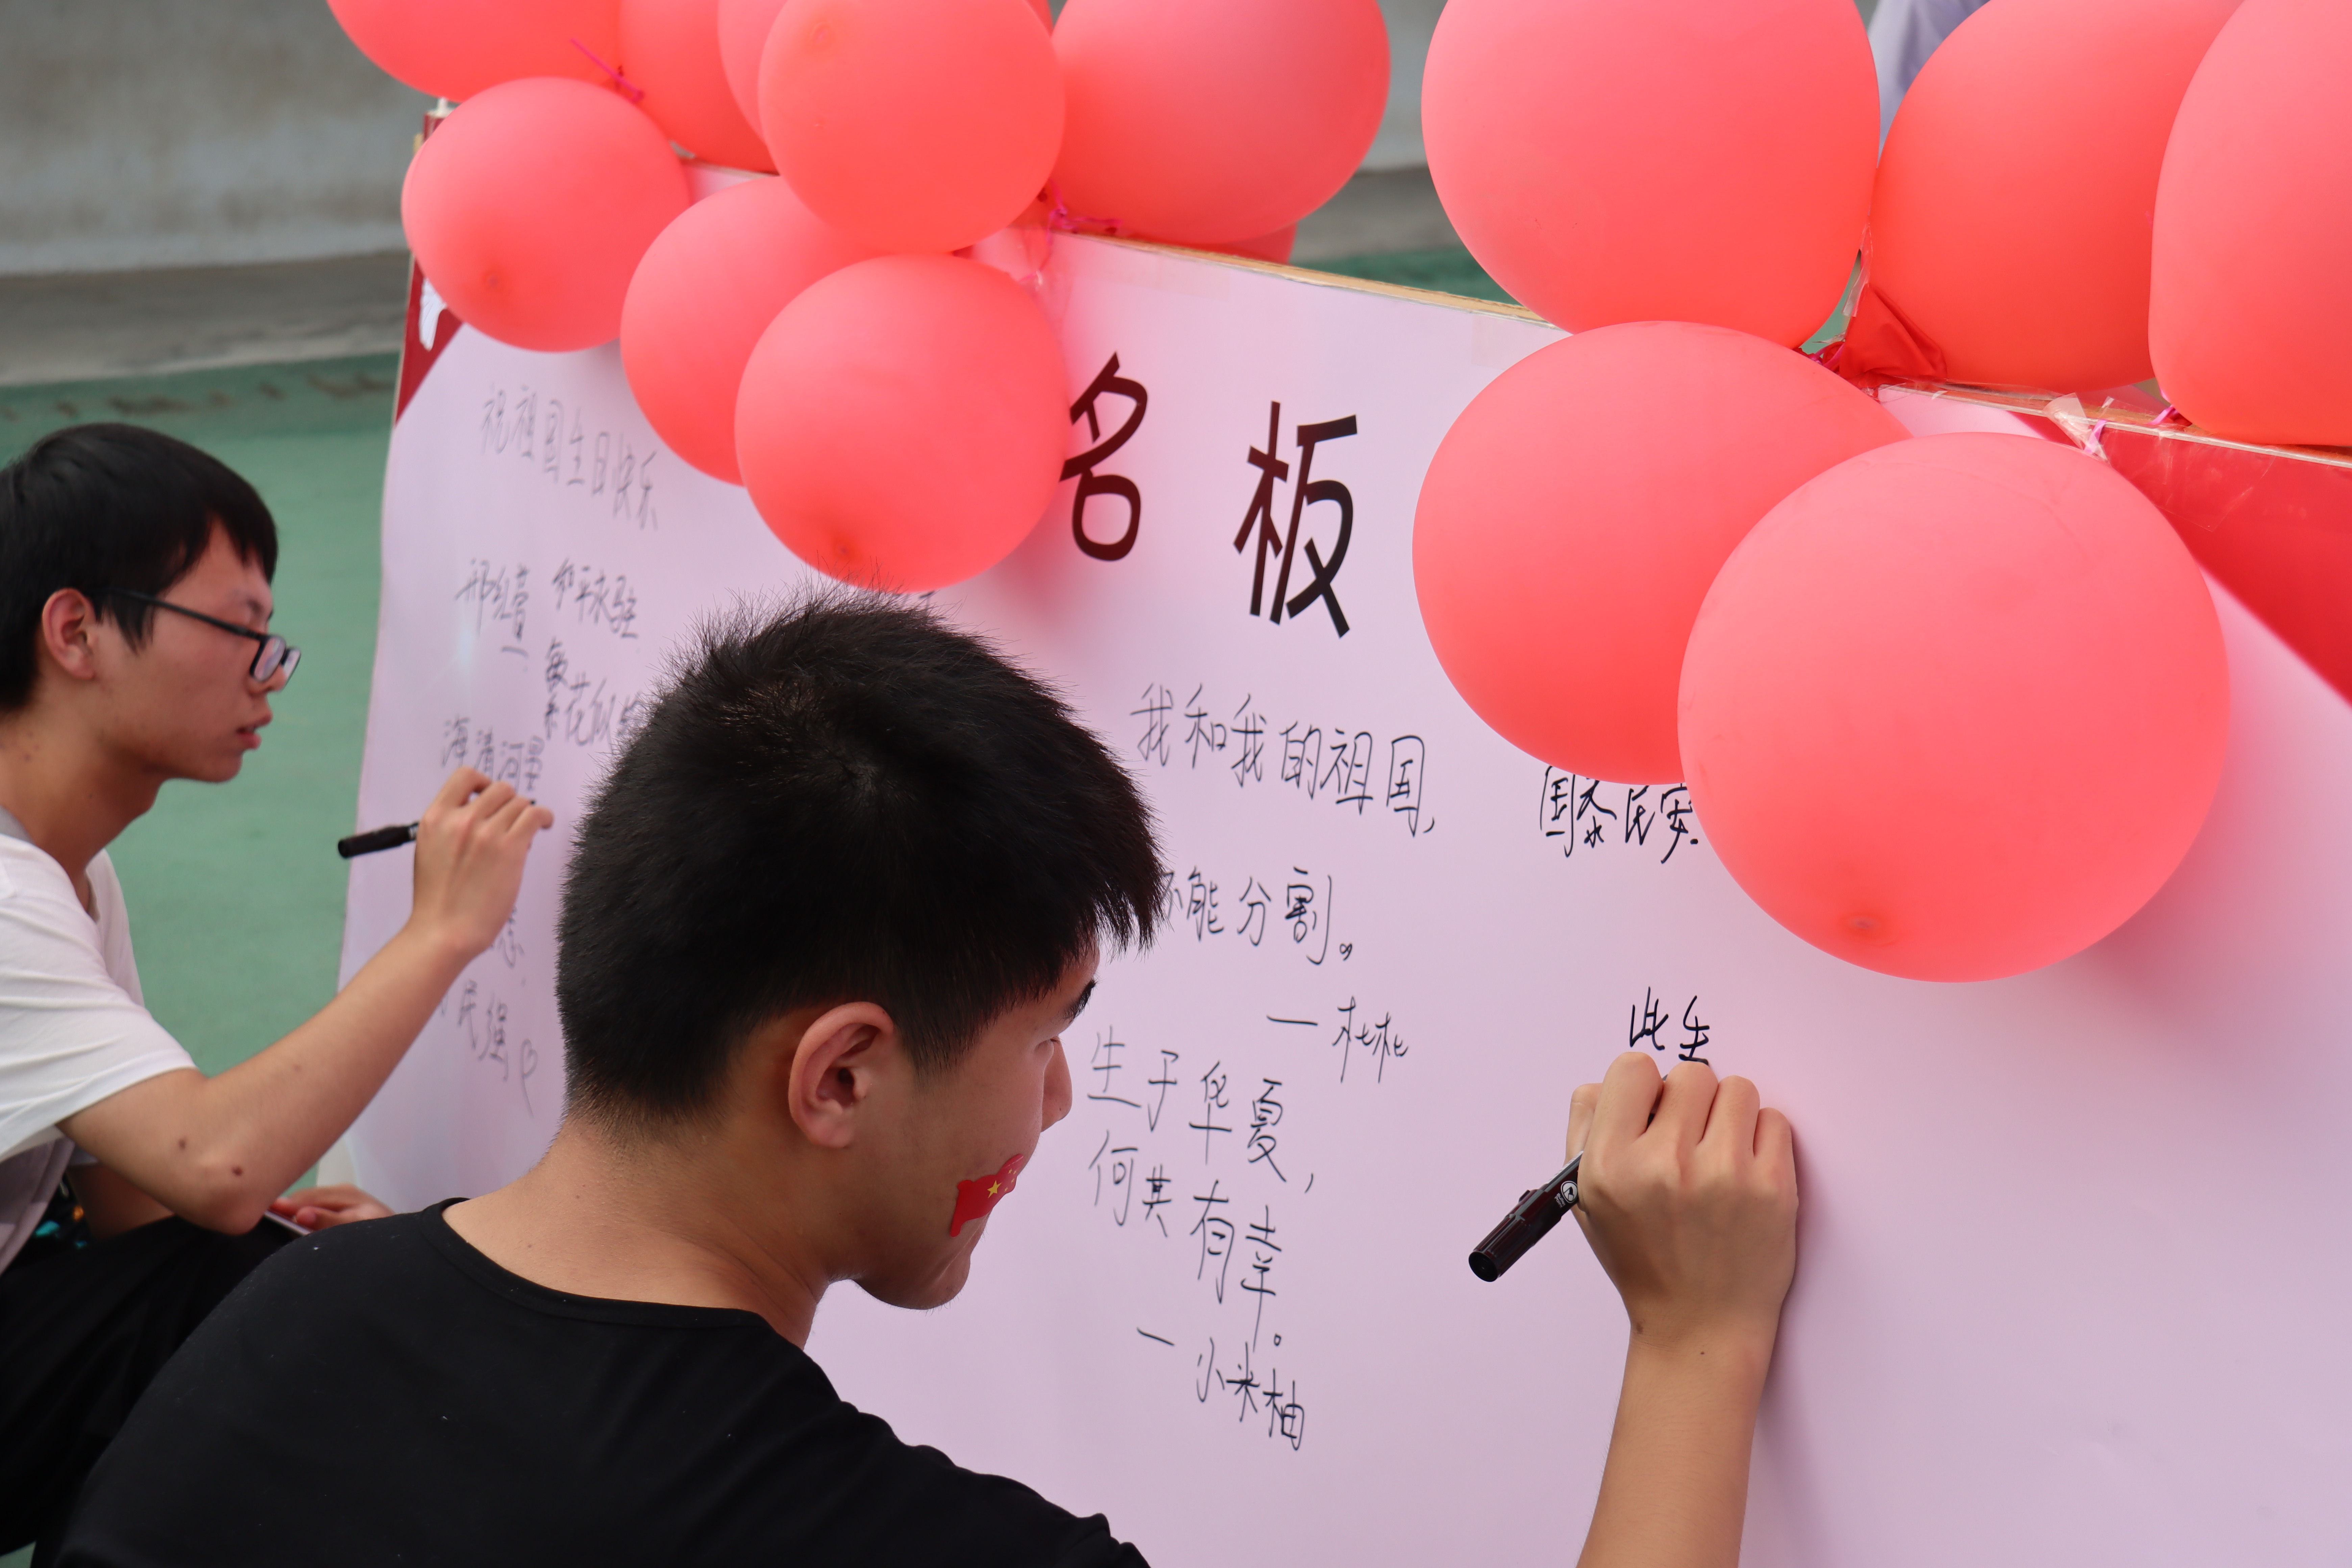 名板
祝祖国生日快乐
和平永驻
繁花似
海清河
民强
我和我的祖国,
不能分割。
国泰民安.
此生
生于华夏,
何其有幸。
一小米柚